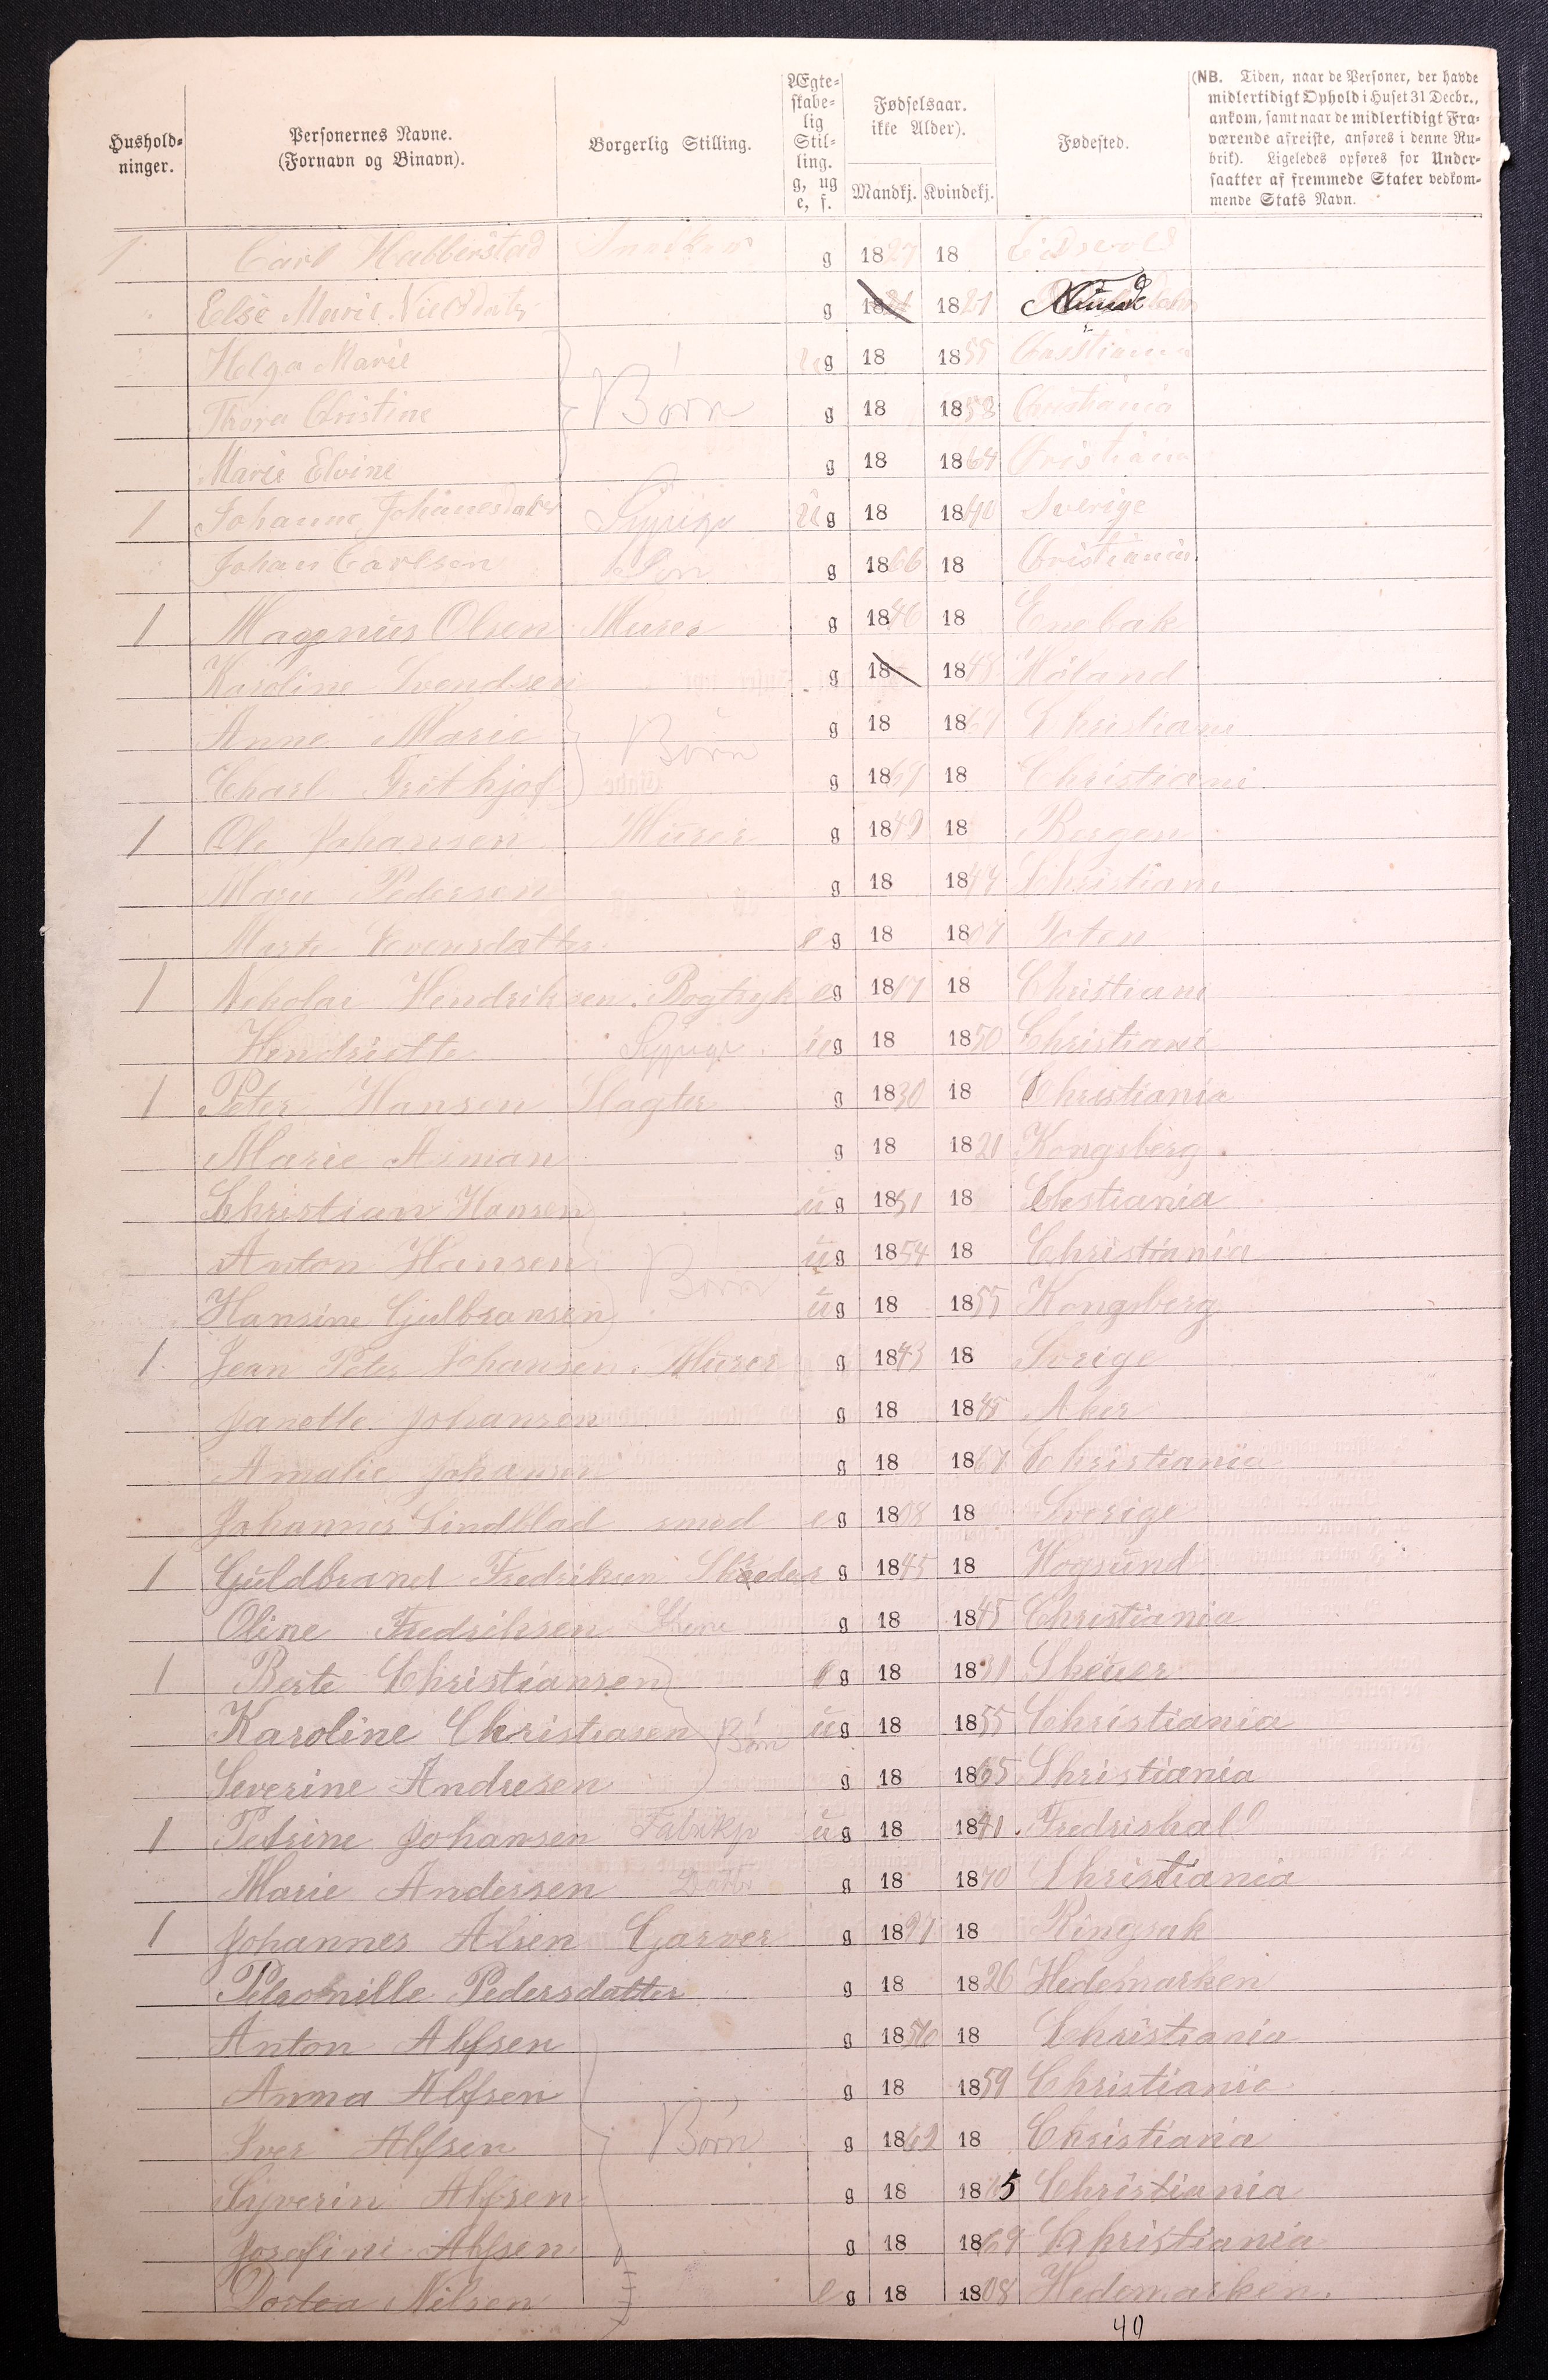 Hushold-ninger. Personernes Navne. (Fornavn og Binavn). Borgerlig Stilling. Ægte-skabe-lig Stil-ling. g, ug e, f. Fødselsaar. ikke Alder). Mandkj. Kvindekj. Fødested. (NB. Tiden, naar de Personer, der havde midlertidigt Ophold i Huset 31 Decbr., ankom, samt naar de midlertidigt Fra-værende afreiste, anføres i denne Ru-brik). Ligeledes opføres for Under-saatter af fremmede Stater vedkom-mende Stats Navn.
1 Carl Habberstad g 1827 18 Eidsvold
Else Marie Nielsdatr g 18 1821
Helga Marie ug 18 1855 Christiania
Thora Christine Børn g 18 1858 Christiania
Marie Elvine g 18 1864 Christiania
1 Johanne Johanesdater Sypige ug 18 1840 Sverige
Johan Carlsen Søn g 1866 18 Cristiania
1 Magnus Olsen Murer g 1846 18 Enebak
Karoline Svendsen g 18 1848 Høland
Anne Marie Børn g 18 1867 Christiani
Charl Frithjof g 1869 18 Christiani
1 Ole Johansen Murer g 1849 18 Bergen
Marie Pedersen g 18 1844 Christiani
Marte Evensdatter eg 18 1807 Toten
1 Nikolai Hendriksen Bogtryk eg 1817 18 Christiani
Hendriette Sypige ug 18 1850 Christiani
1 Peter Hansen Slagter g 1830 18 Christiania
Marie Asman g 18 1821 Kongsberg
Christian Hansen ug 1851 18 Chrstiania
Anton Hansen Børn ug 1854 18 Christiania
Hansine Gulbransen ug 18 1855 Kongsberg
1 Jean Peter Johansen Murer g 1843 18 Sverige
Janette Johansen g 18 1845 Aker
Amalie Johansen g 18 1867 Christiania
Johannes Lindblad smed eg 1808 18 Sverige
1 Guldbrand Fredriksen Skreder g 1845 18 Hogsund
Oline Fredriksen Kone g 18 1845 Christiania
1 Berte Christiansen eg 18 1831 Skeuer
Karoline Christiasen Børn ug 18 1855 Christiania
Severine Andresen g 18 1865 Christiania
1 Petrine Johansen Fabrikp ug 18 1841 Fredrishall
Marie Andersen Datter g 18 1870 Christiania
1 Johannes Alsen Garver g 1827 18 Ringsak
Petronille Pedersdatter g 18 1826 Hedemarken
Anton Alfsen g 1856 18 Christiania
Anna Alfsen g 18 1859 Christiania
Iver Alfsen Børn g 1862 18 Christiania
Syverin Alfsen g 18 1865 Christiania
Josefine Alfsen g 18 1869 Christiania
Dortea Nilsen eg 18 1808 Hedemarken
40